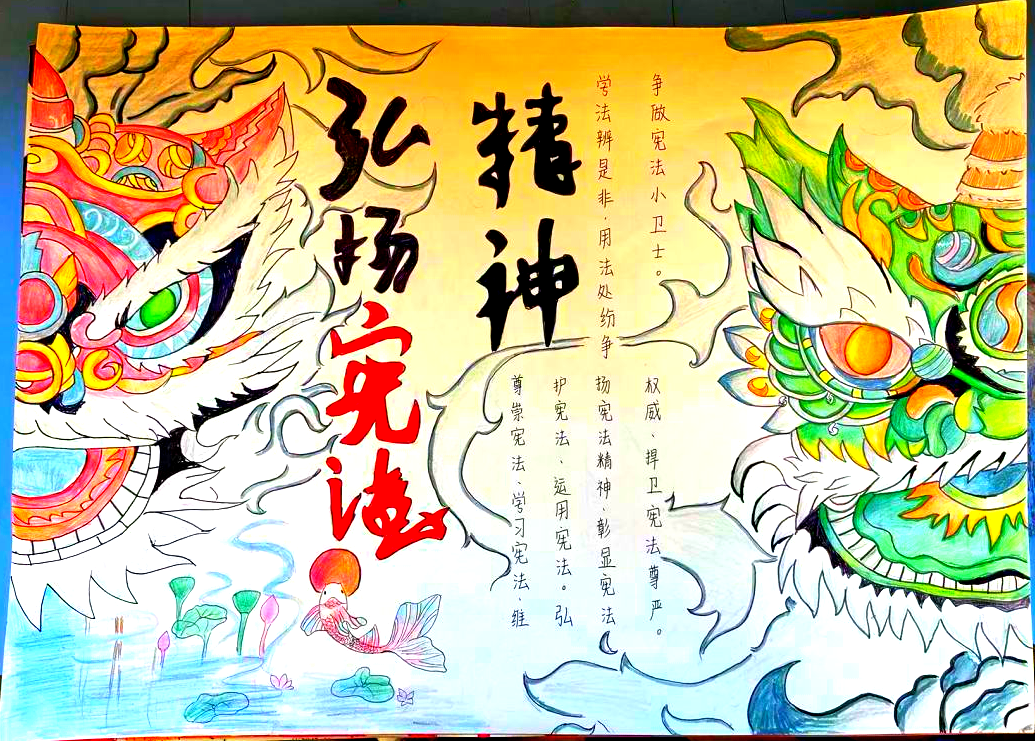 弘扬宪法
精神
学法辨是非、用法处纷争
争做宪法小卫士。
尊崇宪法、学习宪法、维
护宪法、运用宪法。弘
扬宪法精神、彰显宪法
权威、捍卫宪法尊严。